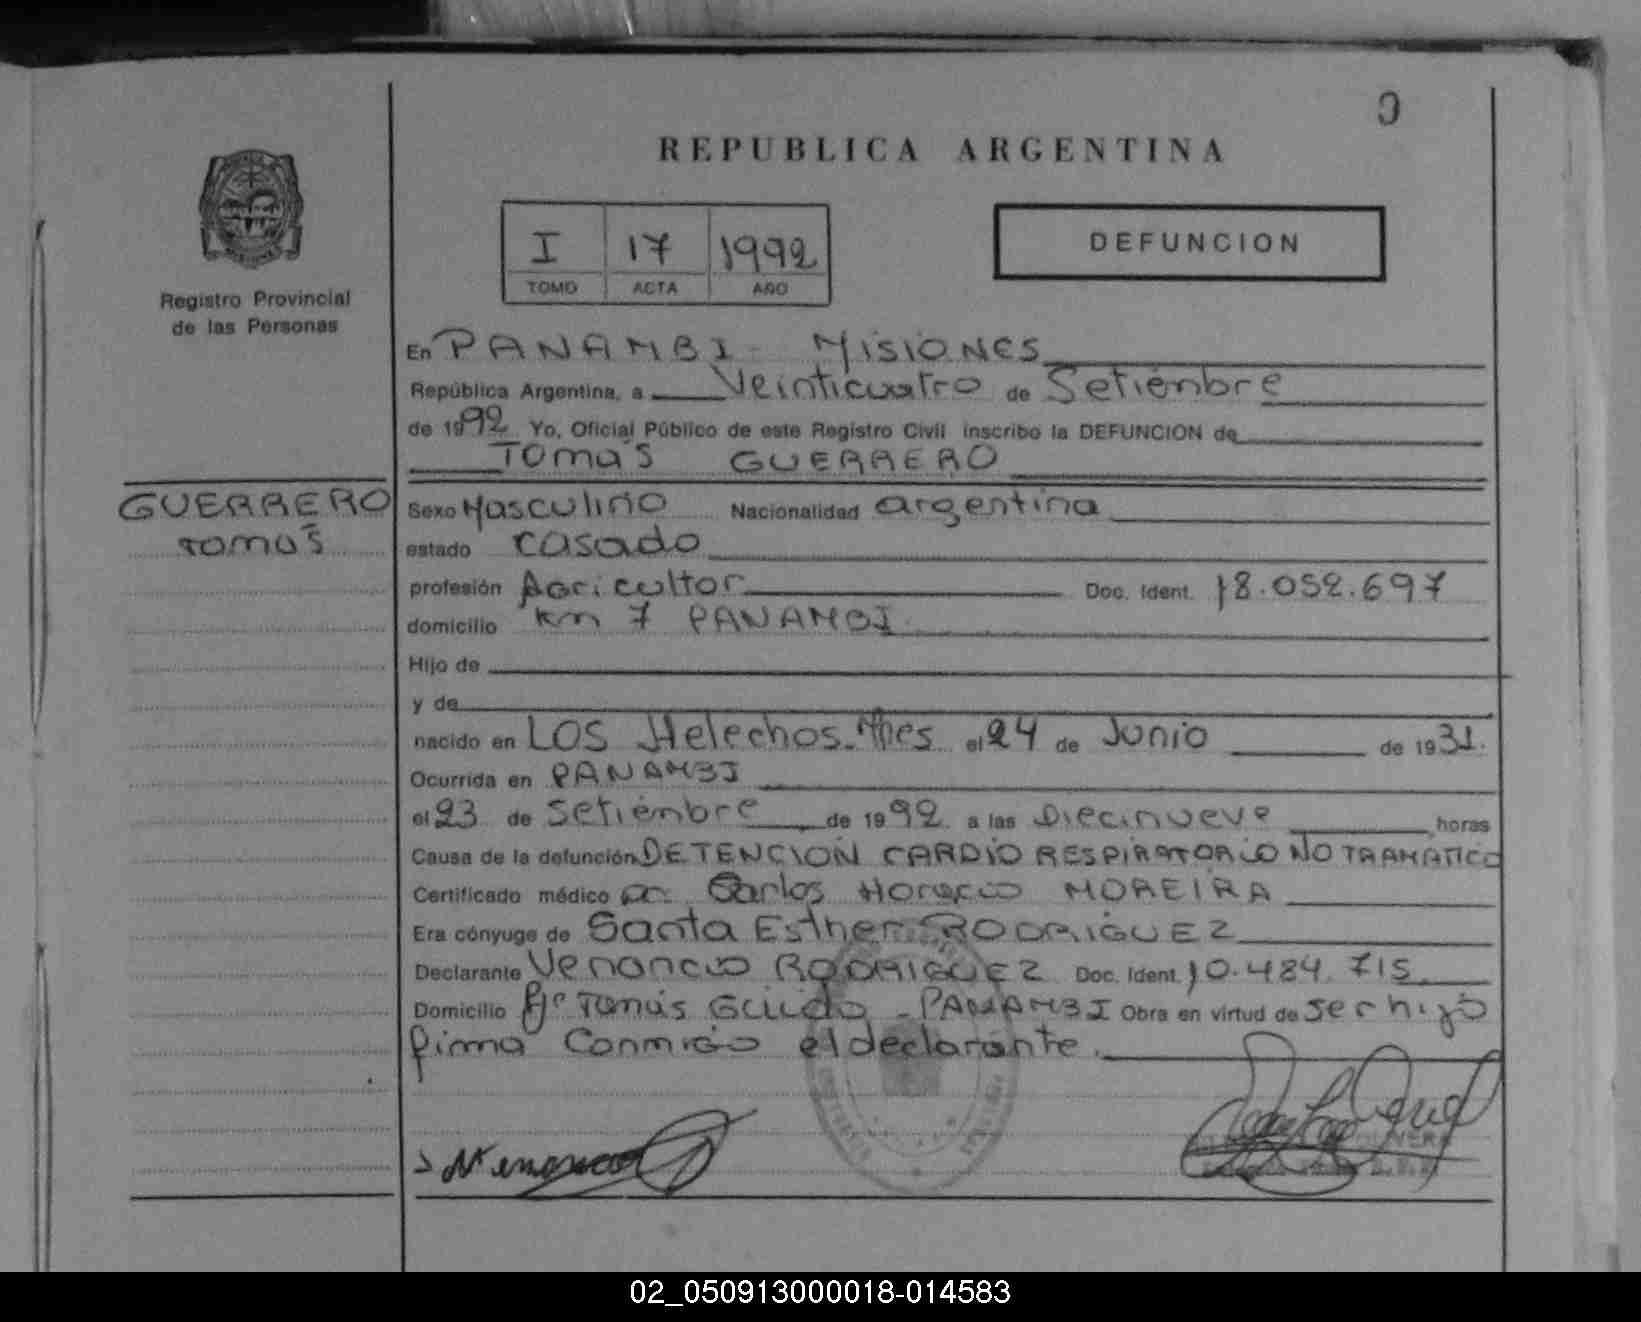 9
REPUBLICA ARGENTINA
I 17 1992
TOMO ACTA AÑO
DEFUNCION
Registro Provincial
de las Personas
En PANAMBI - Misiones
República Argentina, a Veinticuatro de Setiembre
de 1992 Yo, Oficial Público de este Registro Civil inscribo la DEFUNCION de
Tomás GUERRERO
GUERRERO
Tomás
Sexo Masculino Nacionalidad argentina
estado casado
profesión Agricultor Doc. Ident. 18.052.697
domicilio Km 7 PANAMBI
Hijo de
y de
nacido en LOS Helechos. Mnes el 24 de Junio de 1931.
Ocurrida en PANAMBI
el 23 de Setiembre de 1992 a las Diecinueve horas
Causa de la defunción DETENCION CARDIO RESPIRATORIO NO TRAMATICO
Certificado médico Dr. Carlos Horacio MOREIRA
Era cónyuge de Santa Esther RODRIGUEZ
Declarante Venancio RODRIGUEZ Doc. Ident. 10.484.715
Domicilio Aº Tomás Guido - PANAMBI Obra en virtud de ser hijo
firma Conmigo el declarante.
02_050913000018-014583